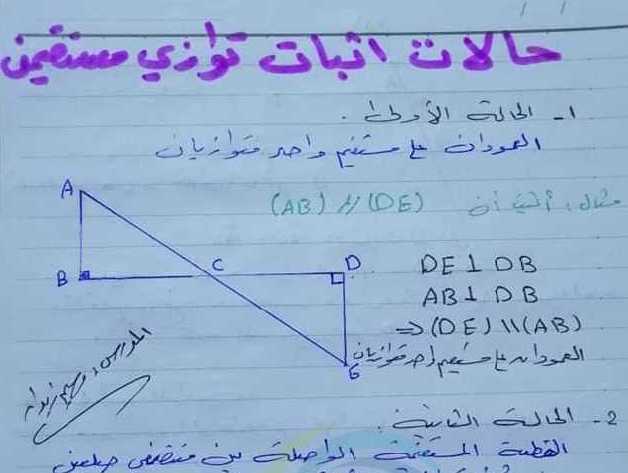 حالات اثبات توازي مستقيمين
1- الحالة الأولى:
العمودان على مستقيم واحد متوازيان
مثال: أثبت أن (AB) // (DE)
A
B
C
D
E
DE ⊥ DB
AB ⊥ DB
⇒ (DE) // (AB)
العمودان على مستقيم واحد متوازيان
المدرس:
2- الحالة الثانية:
القطعة المستقيمة الواصلة بين منتصفي ضلعين